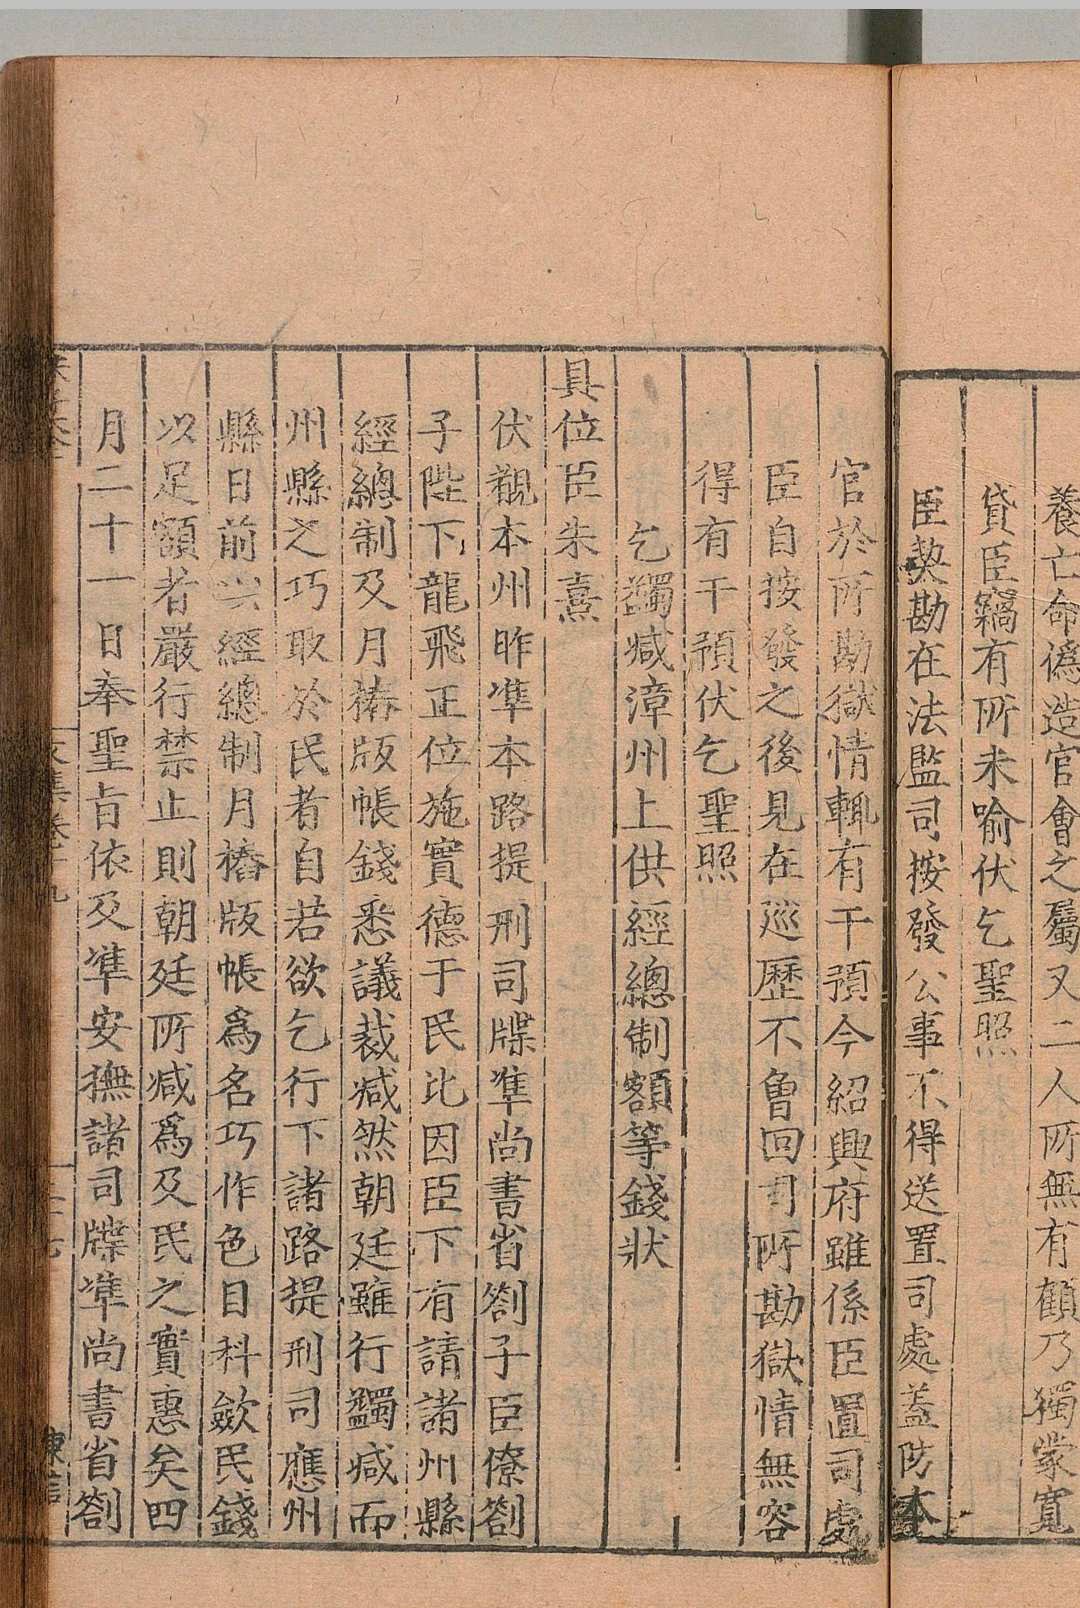 養亡命僞造官會之屬又二人所無有顧乃獨蒙寬
貸臣竊有所未喻伏乞聖照
臣契勘在法監司按發公事不得送置司處蓋防本
官於所勘獄情輒有干預今紹興府雖係臣置司處
臣自按發之後見在廵歷不魯回司所勘獄情無容
得有干預伏乞聖照
乞蠲减漳州上供經總制額等錢狀
具位臣朱熹
伏覩本州昨準本路提刑司牒準尚書省劄子臣僚劄
子陛下龍飛正位施實德于民比因臣下有請諸州縣
經總制及月樁版帳錢悉議裁减然朝廷雖行蠲减而
州縣之巧取於民者自若欲乞行下諸路提刑司應州
縣日前以經總制月樁版帳爲名巧作色目科歛民錢
以足額者嚴行禁止則朝廷所减爲及民之實惠矣四
月二十一日奉聖旨依及準安撫諸司牒準尚書省劄
文集卷十九